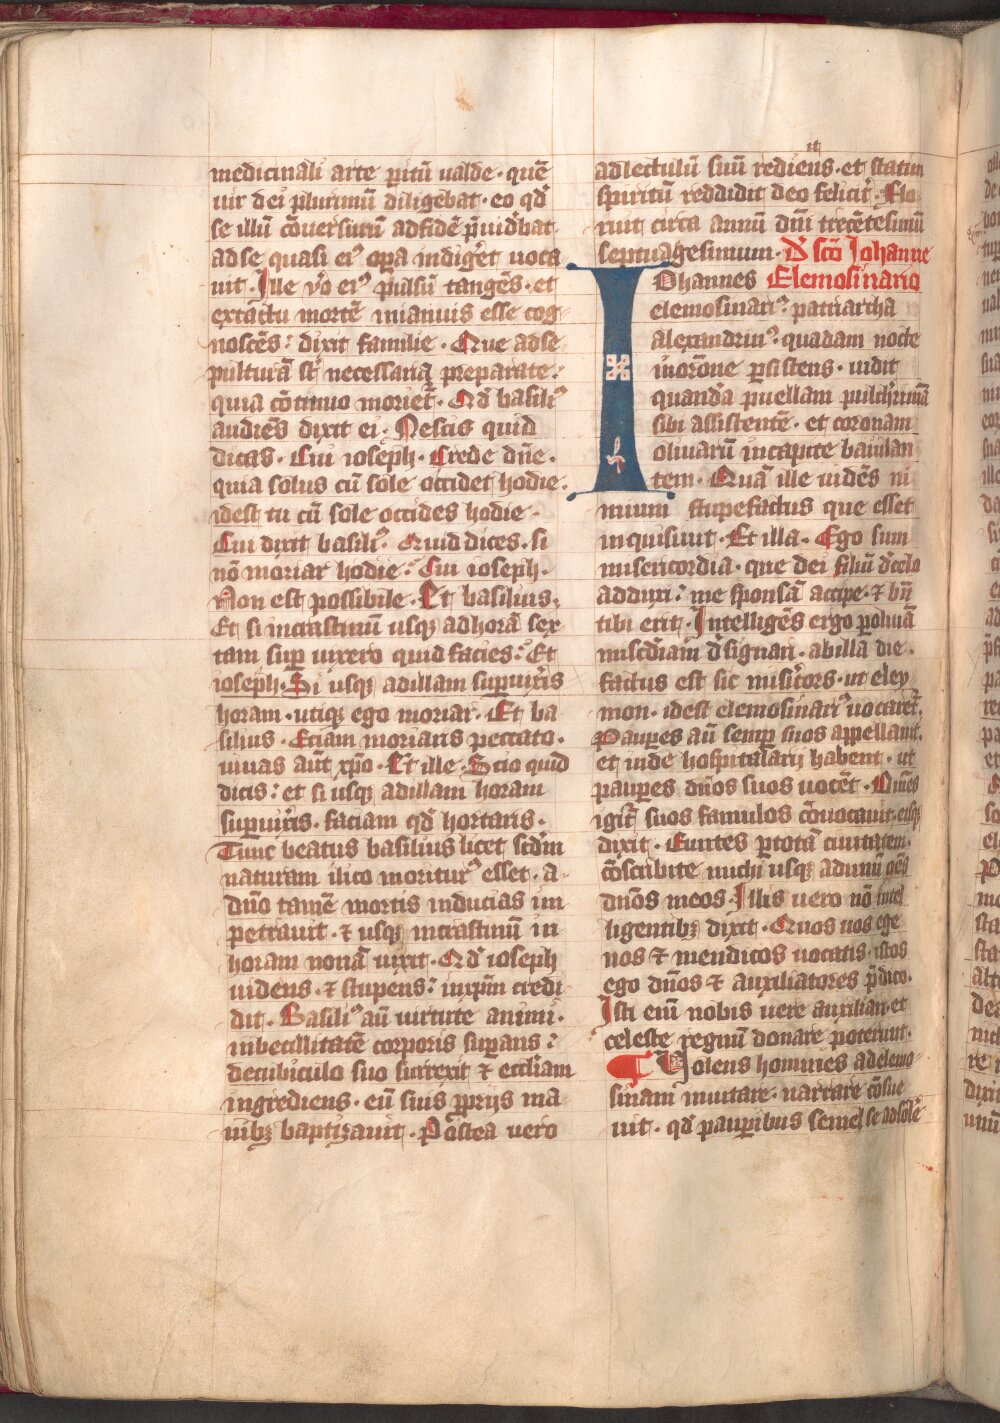 medicinali arte ꝑitū ualde · quē
uir dei plurimū diligebat · eo qd̛
se illū ꝯuersurū ad fidē p̄uidebat
ad se quasi eiꝰ oꝑa indig̛et uoca
uit · Ille v̛o eiꝰ pulsū tangēs · et
ex tactu mortē in ianuis esse cog
noscēs : dixit familie · Que ad se
pulturā st̄ necessaria preparate :
quia cōtinuo moriet̛ · Qd̛ basiliꝰ
audiēs dixit ei · Nescis quid
dicas · Cui ioseph · Crede dn̄e ·
quia solus cū sole occidet hodie ·
idest tu cū sole occides hodie ·
Cui dixit basiliꝰ · Quid dices · si
nō moriar hodie : Cui ioseph ·
Non est possibile · Et basilius ·
Et si in crastinū usqꝫ ad horā sex
tam suꝑ uixero quid facies : Et
ioseph · Si usqꝫ ad illam suꝑuix̛is
horam · utiqꝫ ego moriar · Et ba
silius · Etiam moriaris peccato ·
uiuas aut̄ xp̄o · Et ille · Scio quid
dicis : et si usqꝫ ad illam horam
suꝑuix̛is · faciam qd̛ hortaris ·
Tunc beatus basilius licet scd̛m
naturam ilico moriturꝰ esset · a
dn̄o tamē mortis inducias im
petrauit · ⁊ usqꝫ in crastinū in
horam nonā uixit · Qd̛ ioseph
uidens · ⁊ stupens : in xp̄m credi
dit · Basiliꝰ aū uirtute animi ·
inbecillitatē corporis suꝑans :
de cubiculo suo surrexit ⁊ eccl̛iam
ingrediens · eū suis ꝓprijs ma
nibꝫ baptizauit · Postea uero
ad lectulū suū rediens · et statim
spiritū reddidit deo felicit̛ · Flo
ruit circa annū dn̄i trecētesimū
septuagesimum · D̛ sc̄o Iohanne
Elemosinario
Iohannes
elemosinariꝰ patriarcha
alexandrinꝰ · quadam nocte
in or̄one ꝑsistens · uidit
quandā puellam pulch̛rimā
sibi assistentē · et coronam
oliuarū in capite baiulan
tem · Quā ille uidēs ni
mium stupefactus que esset
inquisiuit · Et illa · Ego sum
misericordia · que dei filiū d̛ celo
adduxi : me sponsā accipe · ⁊ bn̄
tibi erit · Intelligēs ergo ꝑ oliuā
misc̄diam d̛signari · ab illa die ·
factus est sic misic̄ors · ut eley
mon · idest elemosinariꝰ uocaret̛ ·
Pauꝑes aū semꝑ suos appellauit ·
et inde hospitalarij habent · ut
pauꝑes dn̄os suos uocēt · Om̄es
igit̛ suos famulos cōuocauit · eisqꝫ
dixit · Euntes ꝑ totā ciuitatem ·
cōscribite michi usqꝫ ad unū oēs
dn̄os meos · Illis uero nō intel
ligentibꝫ dixit · Quos uos ege
nos ⁊ mendicos uocatis · istos
ego dn̄os ⁊ auxiliatores p̄dico ·
Isti enī nobis uere auxiliari et
celeste regnū donare poterunt ·
¶ Volens homines ad elemo
sinam inuitare · narrare cōsue
uit · qd̛ pauꝑibus semel se ad solē